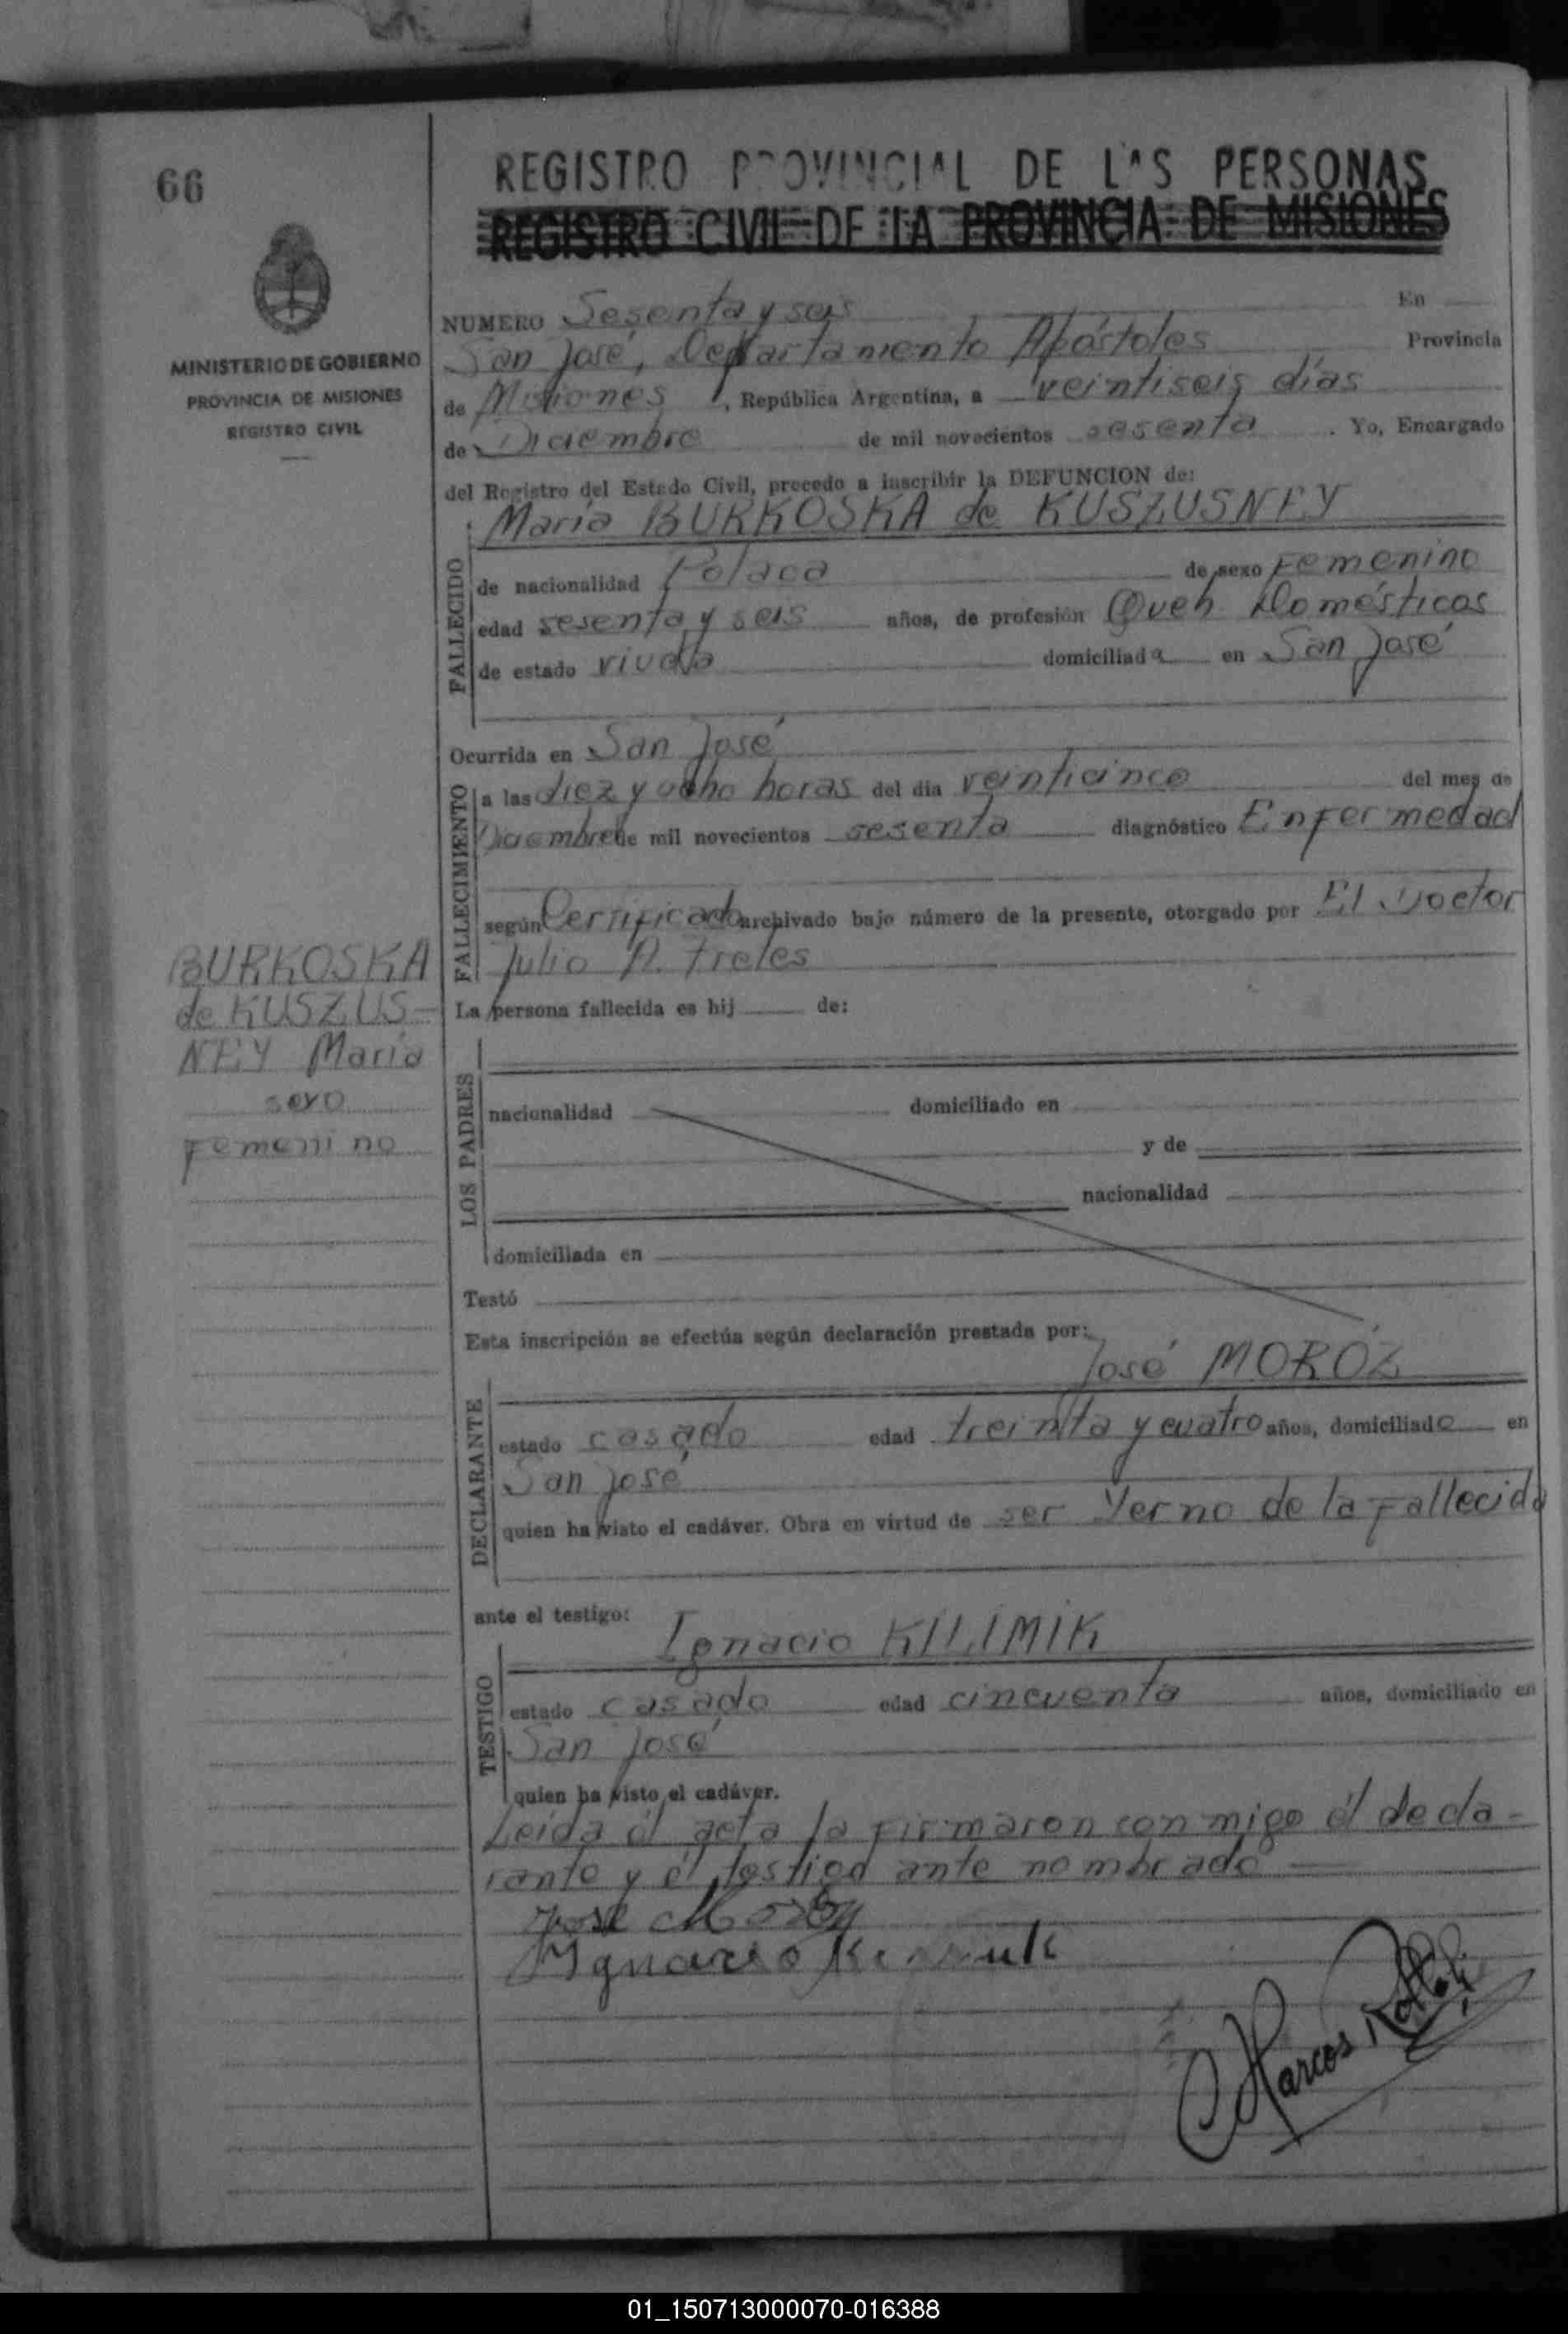 66
REGISTRO PROVINCIAL DE LAS PERSONAS
REGISTRO CIVIL DE LA PROVINCIA DE MISIONES
MINISTERIO DE GOBIERNO
PROVINCIA DE MISIONES
REGISTRO CIVIL
NUMERO Sesenta y seis En
San José, Departamento Apóstoles Provincia
de Misiones, República Argentina, a veintiseis días
de Diciembre de mil novecientos sesenta. Yo, Encargado
del Registro del Estado Civil, procedo a inscribir la DEFUNCION de:
María BURKOSKA de KUSZUSNEY
FALLECIDO
de nacionalidad Polaca de sexo Femenino
edad sesenta y seis años, de profesión Queh Domésticos
de estado viuda domiciliada en San José
Ocurrida en San José
FALLECIMIENTO
a las diez y ocho horas del día veinticinco del mes de
Diciembre de mil novecientos sesenta diagnóstico Enfermedad
según Certificado archivado bajo número de la presente, otorgado por El Doctor
Julio A. Treles
BURKOSKA
de KUSZUS-
NEY María
sexo
Femenino
La persona fallecida es hij de:
LOS PADRES
nacionalidad domiciliado en
y de
nacionalidad
domiciliada en
Testó
Esta inscripción se efectúa según declaración prestada por:
José MOROZ
DECLARANTE
estado casado edad treinta y cuatro años, domiciliado en
San José
quien ha visto el cadáver. Obra en virtud de ser Yerno de la Fallecida
ante el testigo:
Ignacio KILIMIK
TESTIGO
estado casado edad cincuenta años, domiciliado en
San José
quien ha visto el cadáver.
Leída él acta la firmaron conmigo él decla-
rante y él testigo ante nombrado
José
Ygnacio
Marcos
01_150713000070-016388